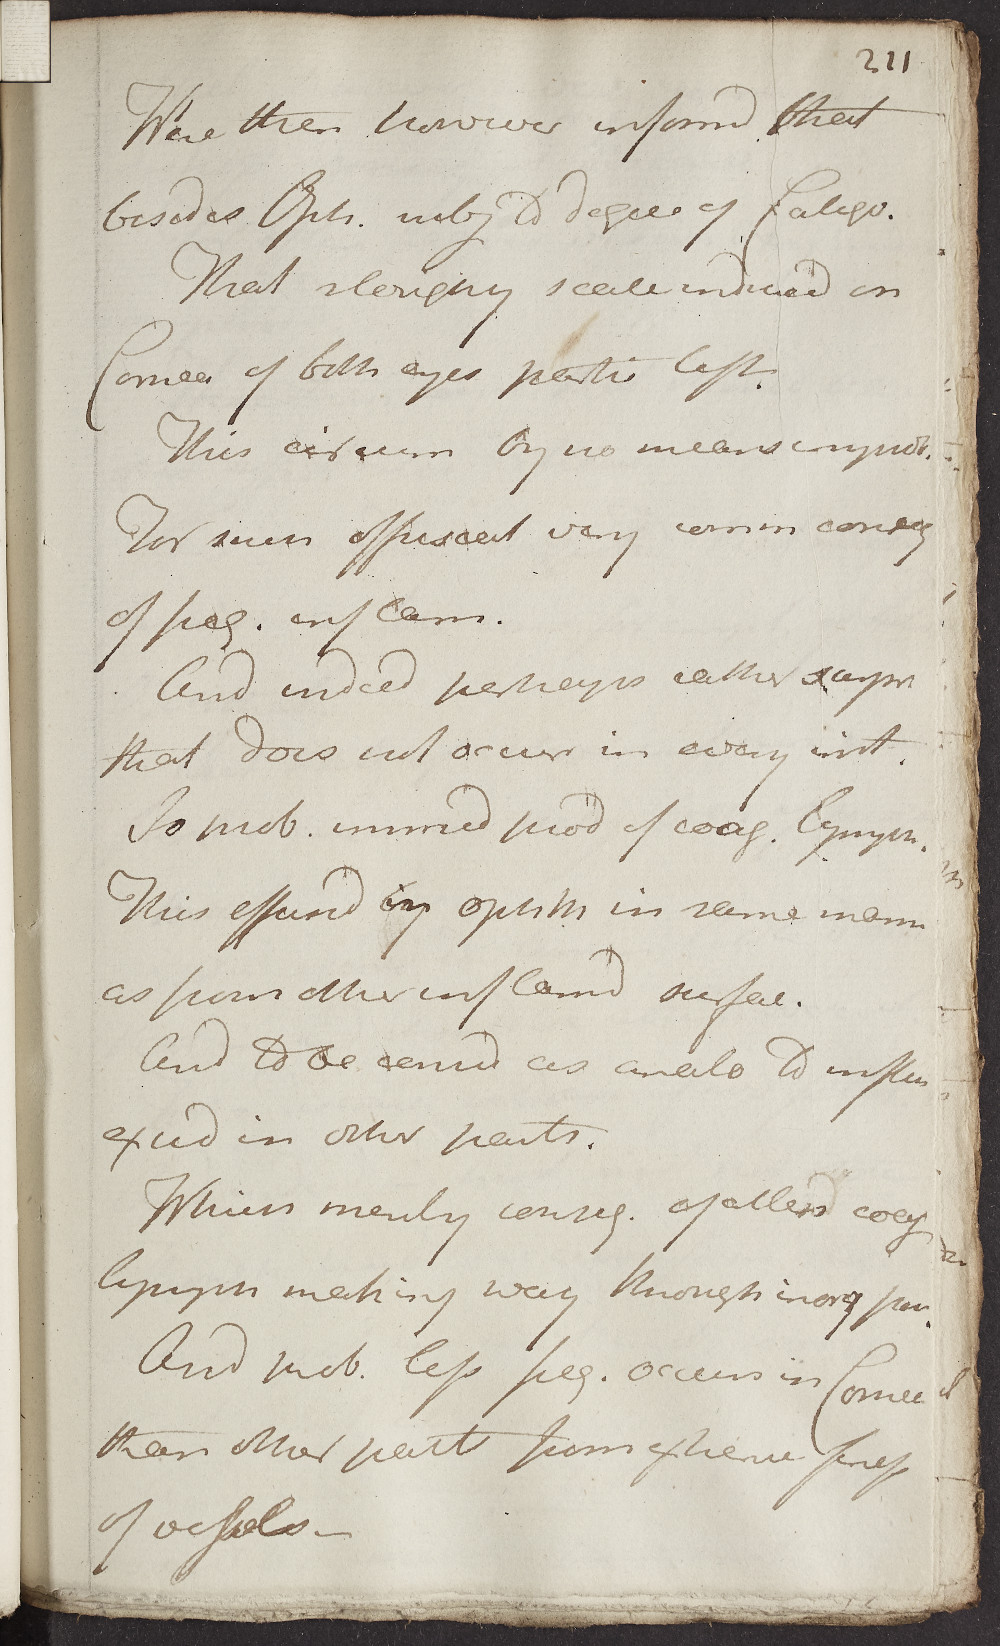 211
Were then however informd that
besides Oph. subj to degree of Caligo.
That slougny scale induced on
Cornea of both eyes partic left.
This circum by no means impro.
For such offuscat very comm conseq
of freq. inflam.
And indeed perhaps rather surpr
that does not occur in every inst.
Is prob. immed prod of coag. lymph.
This effused by ophth in same mann
as from other inflamd surfac.
And to be consid as analo to inflam
exud in other parts.
Which merely conseq. of attend coag
lymph making way through inorg par.
And prob. less freq. occurs in Cornea
than other parts from extreme finess
of vessels—